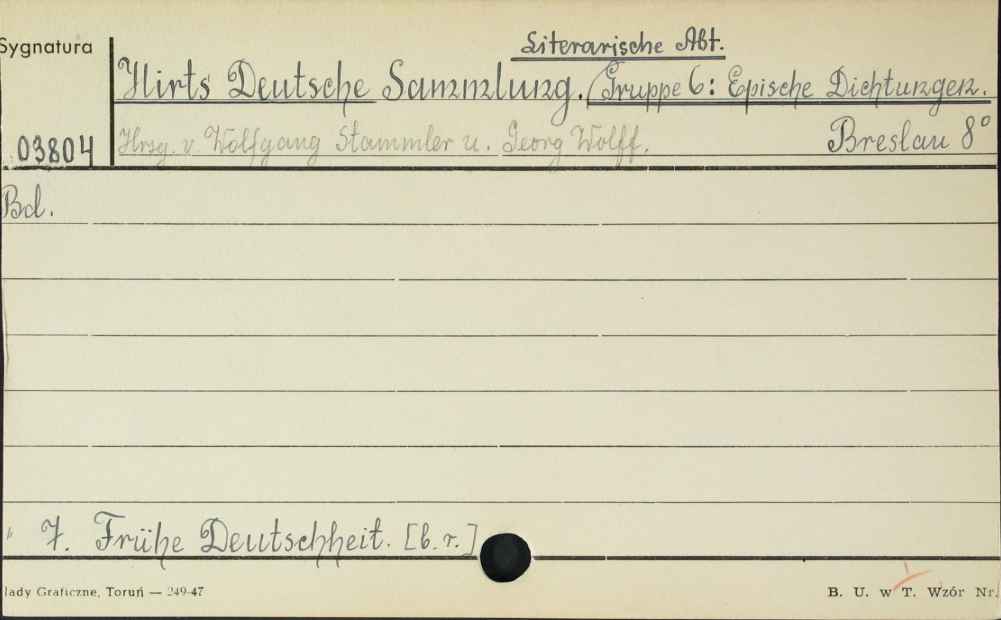 Sygnatura
Literarische Abt.
Hirts Deutsche Sammlung. Gruppe 6: Epische Dichtungen.
03804
Hrsg. v. Wolfgang Stammler u. Georg Wolff. Breslau 8°
Bd.
7. Frühe Deutschheit. [b. r.]
lady Graficzne, Toruń — 249-47
B. U. w T. Wzór Nr.